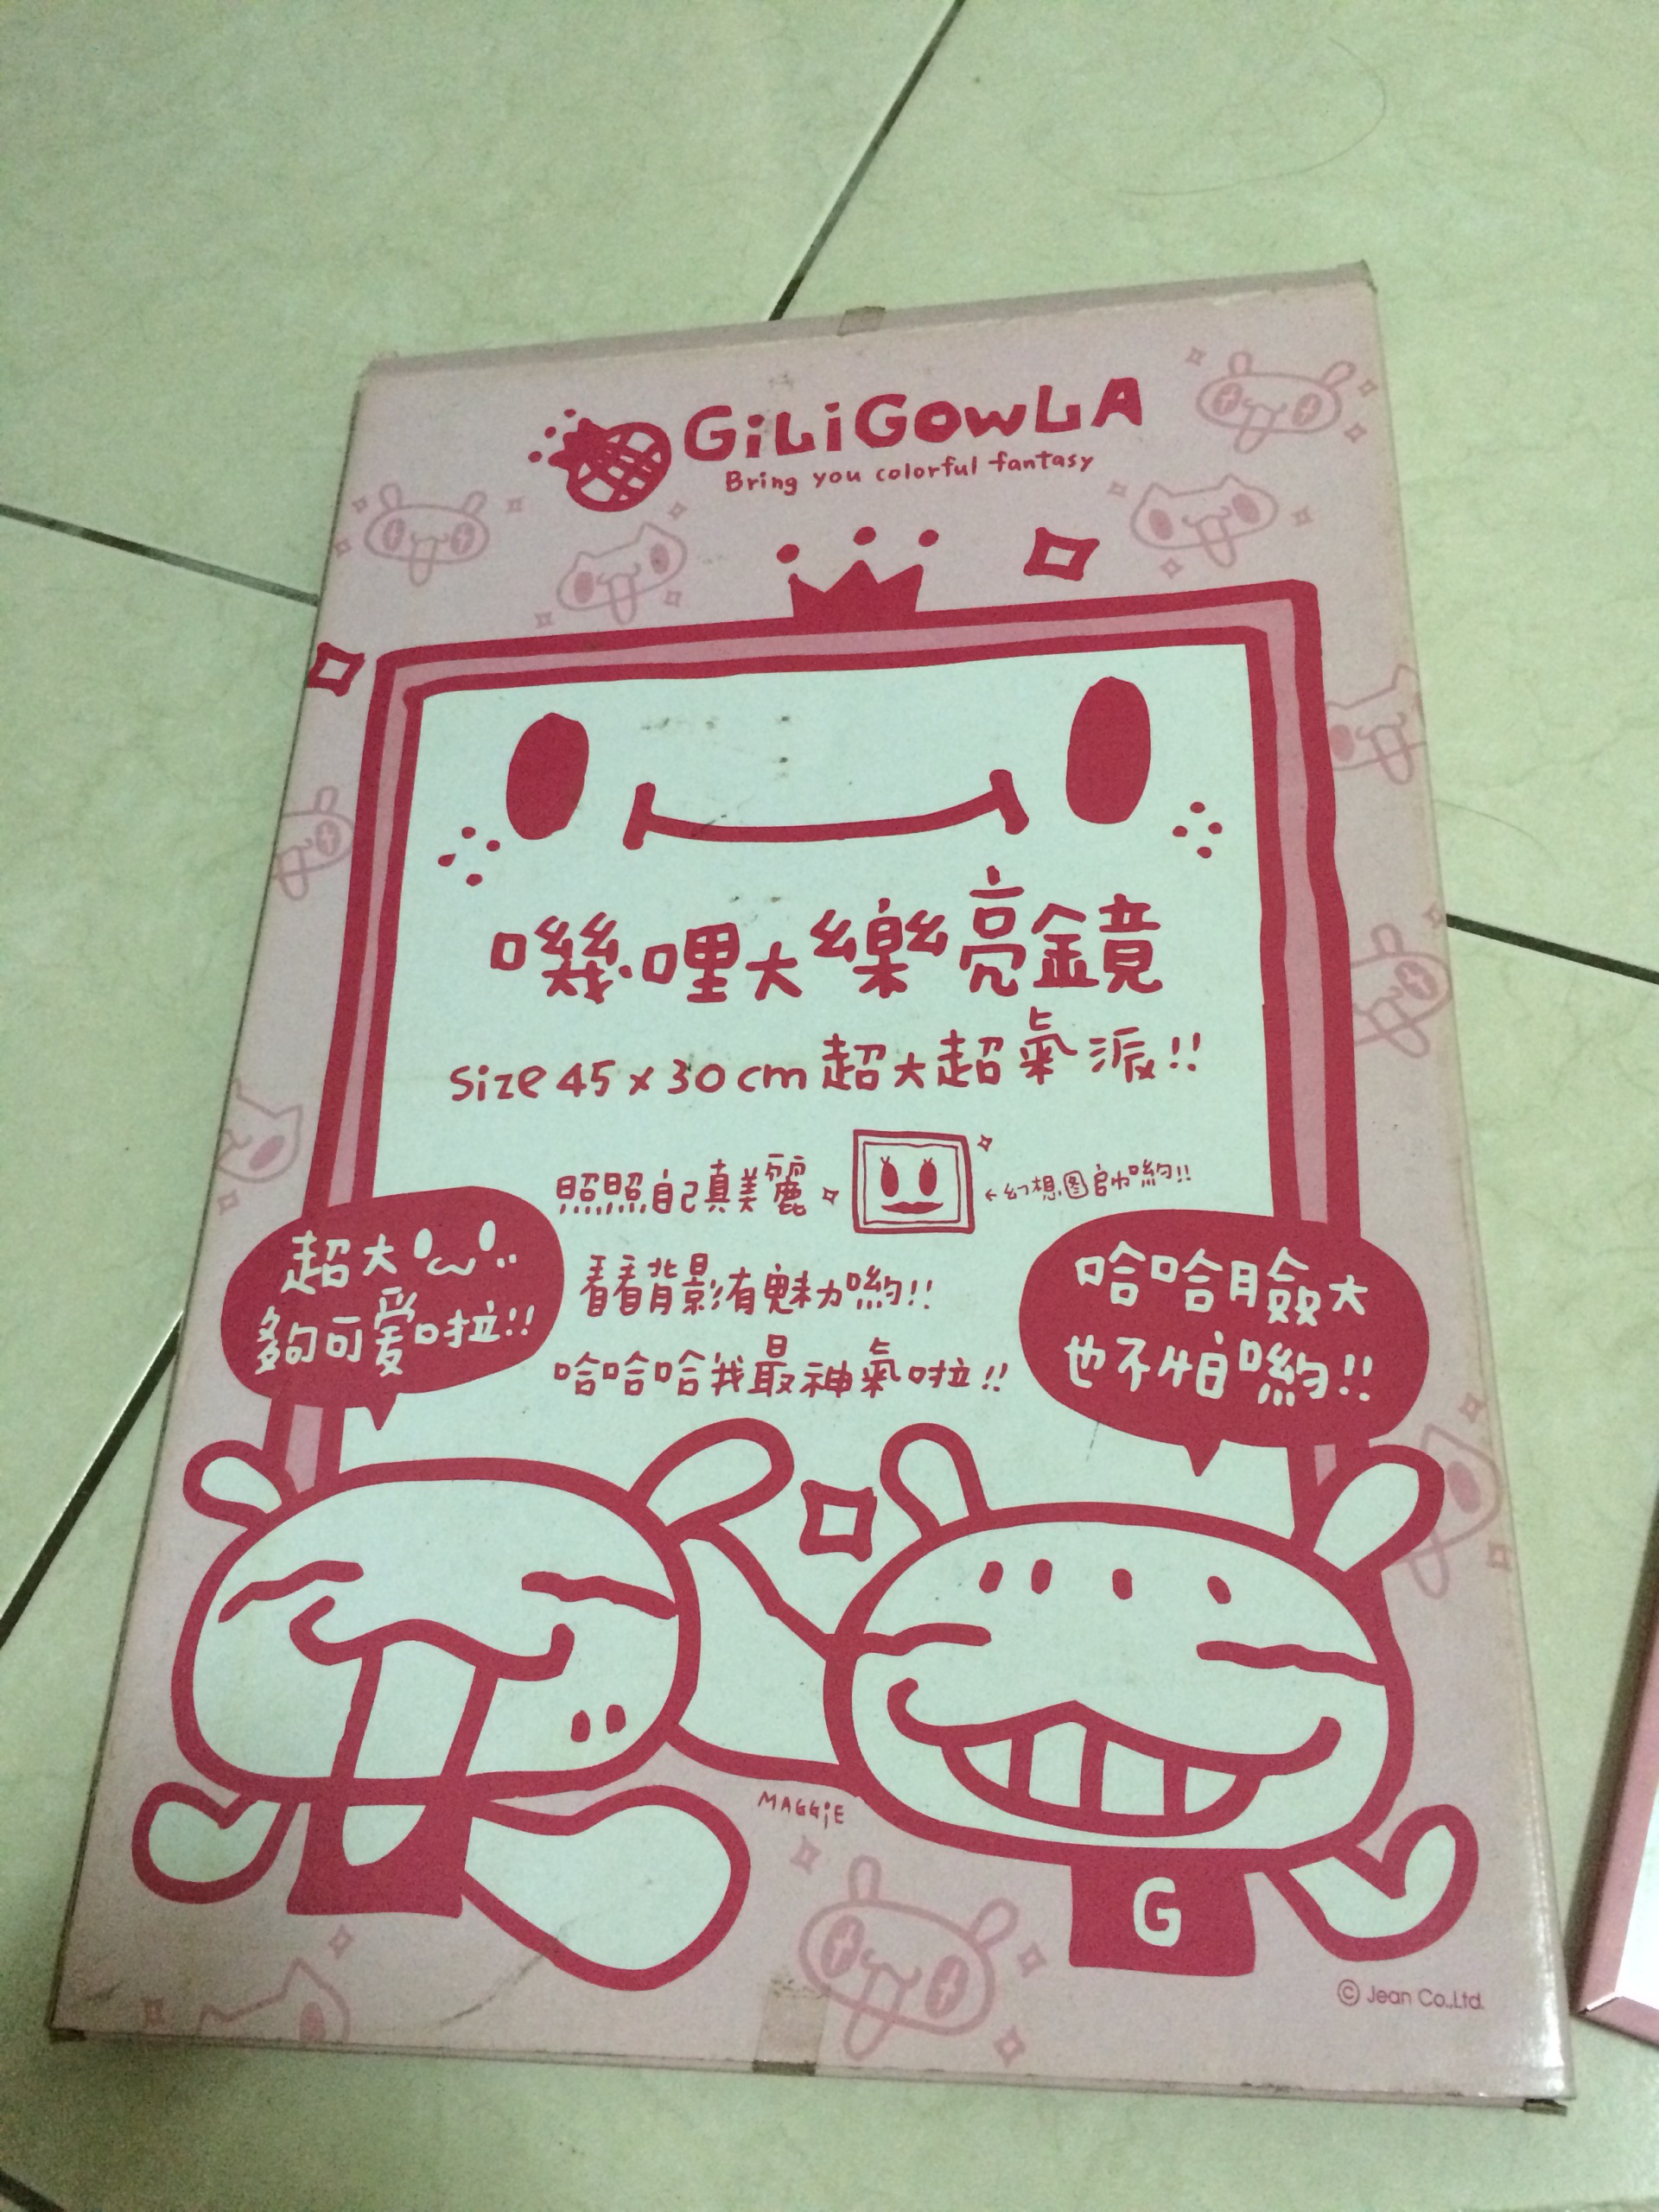 GiLiGOWLA
Bring you colorful fantasy
嘰哩大樂亮鏡
Size 45 x 30cm 超大超氣派!!
照照自己真美麗
←幻想图帥喲!!
超大
夠可愛啦!!
看看背影有魅力喲!!
哈哈臉大
也不怕喲!!
哈哈哈我最神氣啦!!
MAGGiE
G
© Jean Co.,Ltd.